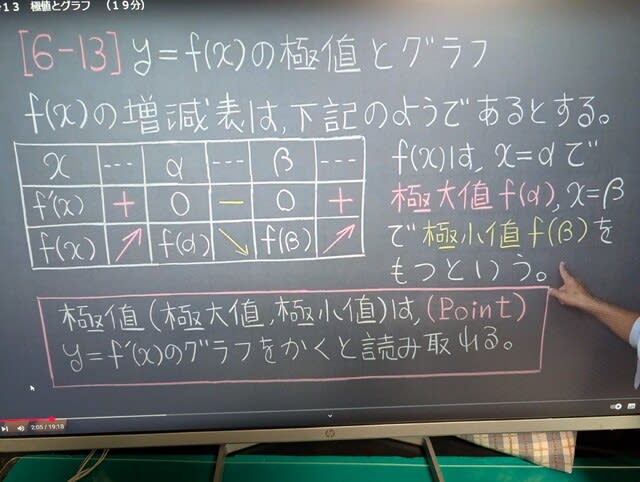 13 極値とグラフ (19分)
[6-13] y=f(x)の極値とグラフ
f(x)の増減表は,下記のようであるとする。
x --- α --- β ---
f'(x) + 0 − 0 +
f(x) ↗ f(α) ↘ f(β) ↗
f(x)は, x=αで
極大値 f(α), x=β
で 極小値 f(β)を
もつという。
極値(極大値,極小値)は, (Point)
y=f'(x)のグラフをかくと読み取れる。
2:05 / 19:18
hp